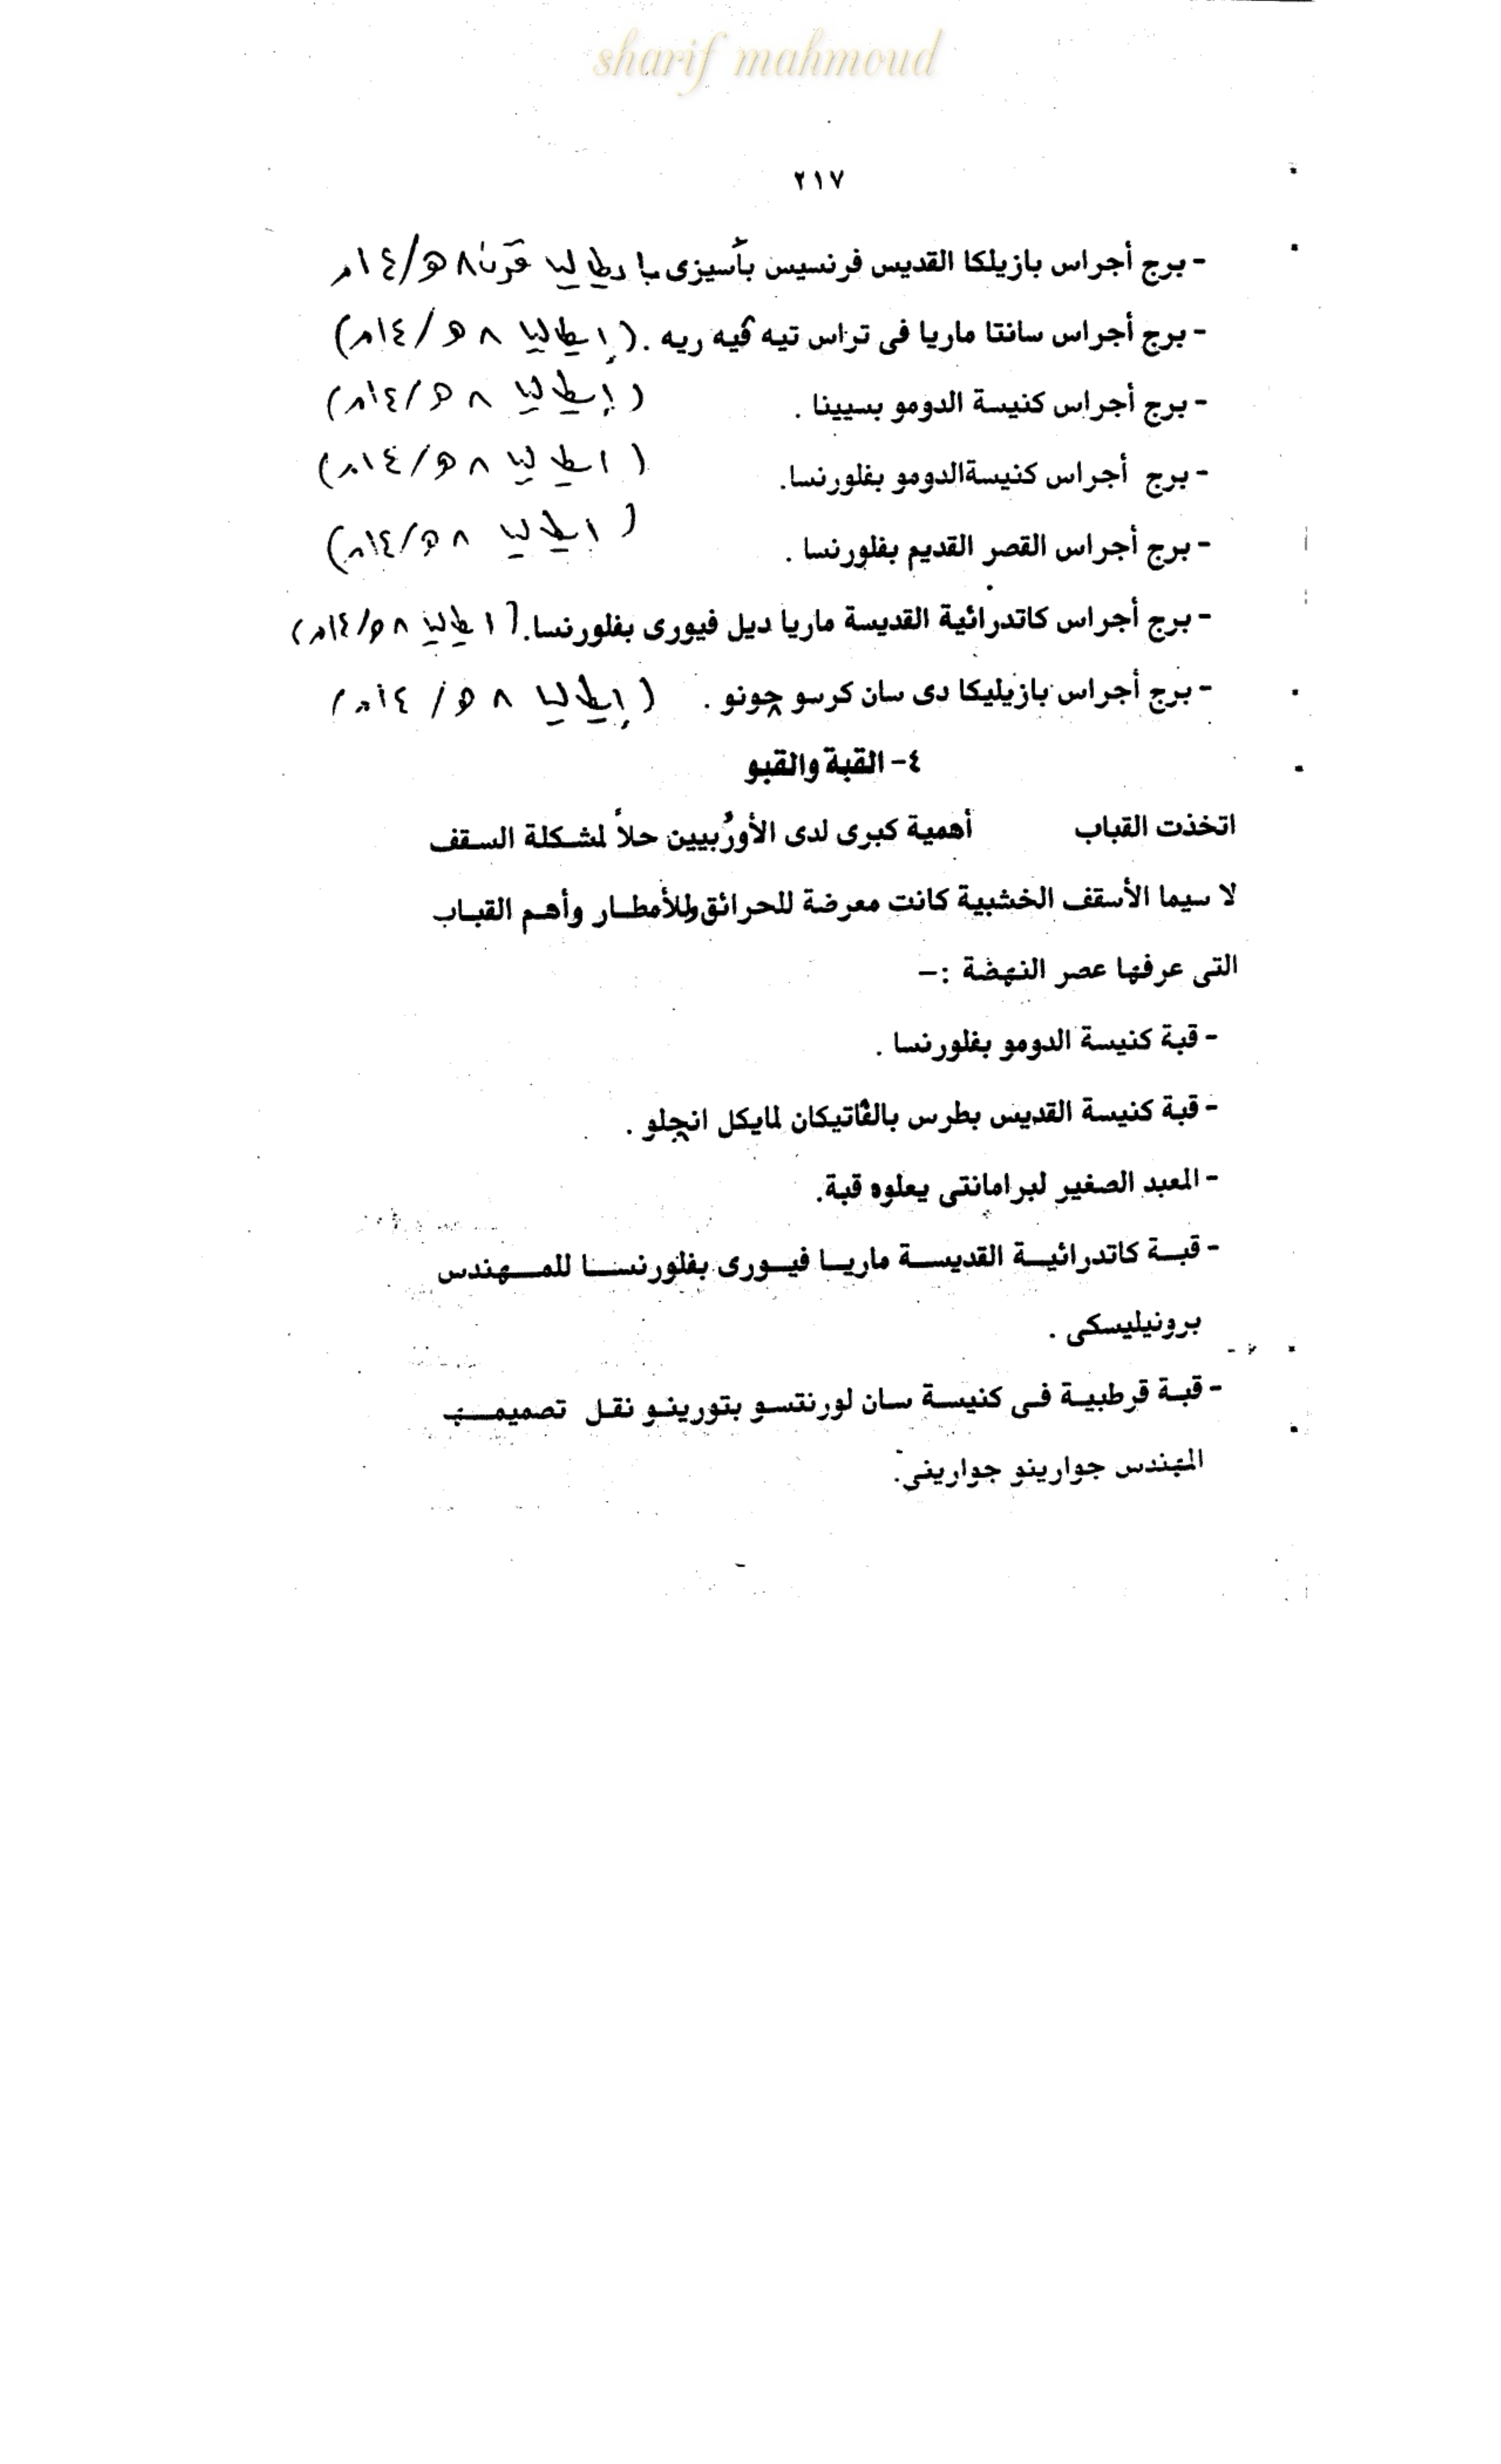 sharif mahmoud
٢١٧
- برج أجراس بازيلكا القديس فرنسيس بأسيزى بإيطاليا قرن ٨هـ/١٤م
- برج أجراس سانتا ماريا فى تراس تيه ڤيه ريه . (إيطاليا ٨هـ/١٤م)
- برج أجراس كنيسة الدومو بسيينا . (إيطاليا ٨هـ/١٤م)
- برج أجراس كنيسةالدومو بفلورنسا. (ايطاليا ٨هـ/١٤م)
- برج أجراس القصر القديم بفلورنسا . (ايطاليا ٨هـ/١٤م)
- برج أجراس كاتدرائية القديسة ماريا ديل فيورى بفلورنسا. (ايطاليا ٨هـ/١٤م)
- برج أجراس بازيليكا دى سان كرسو جونو . (إيطاليا ٨هـ/١٤م)
٤- القبة والقبو
اتخذت القباب أهمية كبرى لدى الأورُبيين حلاً لمشكلة السقف
لا سيما الأسقف الخشبية كانت معرضة للحرائق وللأمطار وأهم القباب
التى عرفها عصر النهضة :-
- قبة كنيسة الدومو بفلورنسا .
- قبة كنيسة القديس بطرس بالڤاتيكان لمايكل انجلو .
- المعبد الصغير لبرامانتى يعلوه قبة.
- قبة كاتدرائية القديسة ماريا فيورى بفلورنسا للمهندس
برونيليسكى .
- قبة قرطبية فى كنيسة سان لورنتسو بتورينو نقل تصميمه
المهندس جوارينو جوارينى.